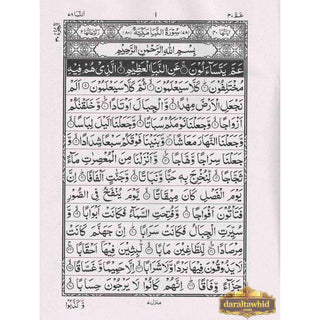 عَمَّ ٣٠
١
النَّبَا ٧٨
سُوْرَةُ النَّبَاِ مَكِّيَّةٌ
بِسْمِ اللّٰهِ الرَّحْمٰنِ الرَّحِيْمِ
عَمَّ يَتَسَآءَلُوْنَ ۝ عَنِ النَّبَاِ الْعَظِيْمِ ۝ الَّذِيْ هُمْ فِيْهِ
مُخْتَلِفُوْنَ ۝ كَلَّا سَيَعْلَمُوْنَ ۝ ثُمَّ كَلَّا سَيَعْلَمُوْنَ ۝ اَلَمْ
نَجْعَلِ الْاَرْضَ مِهٰدًا ۝ وَّالْجِبَالَ اَوْتَادًا ۝ وَّخَلَقْنٰكُمْ
اَزْوَاجًا ۝ وَّجَعَلْنَا نَوْمَكُمْ سُبَاتًا ۝ وَّجَعَلْنَا الَّيْلَ لِبَاسًا ۝
وَّجَعَلْنَا النَّهَارَ مَعَاشًا ۝ وَّبَنَيْنَا فَوْقَكُمْ سَبْعًا شِدَادًا ۝ وَّجَعَلْنَا
سِرَاجًا وَّهَّاجًا ۝ وَّاَنْزَلْنَا مِنَ الْمُعْصِرٰتِ مَآءً
ثَجَّاجًا ۝ لِّنُخْرِجَ بِهٖ حَبًّا وَّنَبَاتًا ۝ وَّجَنّٰتٍ اَلْفَافًا ۝ اِنَّ
يَوْمَ الْفَصْلِ كَانَ مِيْقَاتًا ۝ يَّوْمَ يُنْفَخُ فِي الصُّوْرِ
فَتَاْتُوْنَ اَفْوَاجًا ۝ وَّفُتِحَتِ السَّمَآءُ فَكَانَتْ اَبْوَابًا ۝ وَّ
سُيِّرَتِ الْجِبَالُ فَكَانَتْ سَرَابًا ۝ اِنَّ جَهَنَّمَ كَانَتْ
مِرْصَادًا ۝ لِّلطَّاغِيْنَ مَاٰبًا ۝ لّٰبِثِيْنَ فِيْهَآ اَحْقَابًا ۝
لَا يَذُوْقُوْنَ فِيْهَا بَرْدًا وَّلَا شَرَابًا ۝ اِلَّا حَمِيْمًا وَّغَسَّاقًا ۝
جَزَآءً وِّفَاقًا ۝ اِنَّهُمْ كَانُوْا لَا يَرْجُوْنَ حِسَابًا ۝
وَّكَذَّبُوْا
منزل ٧
daraltawhid